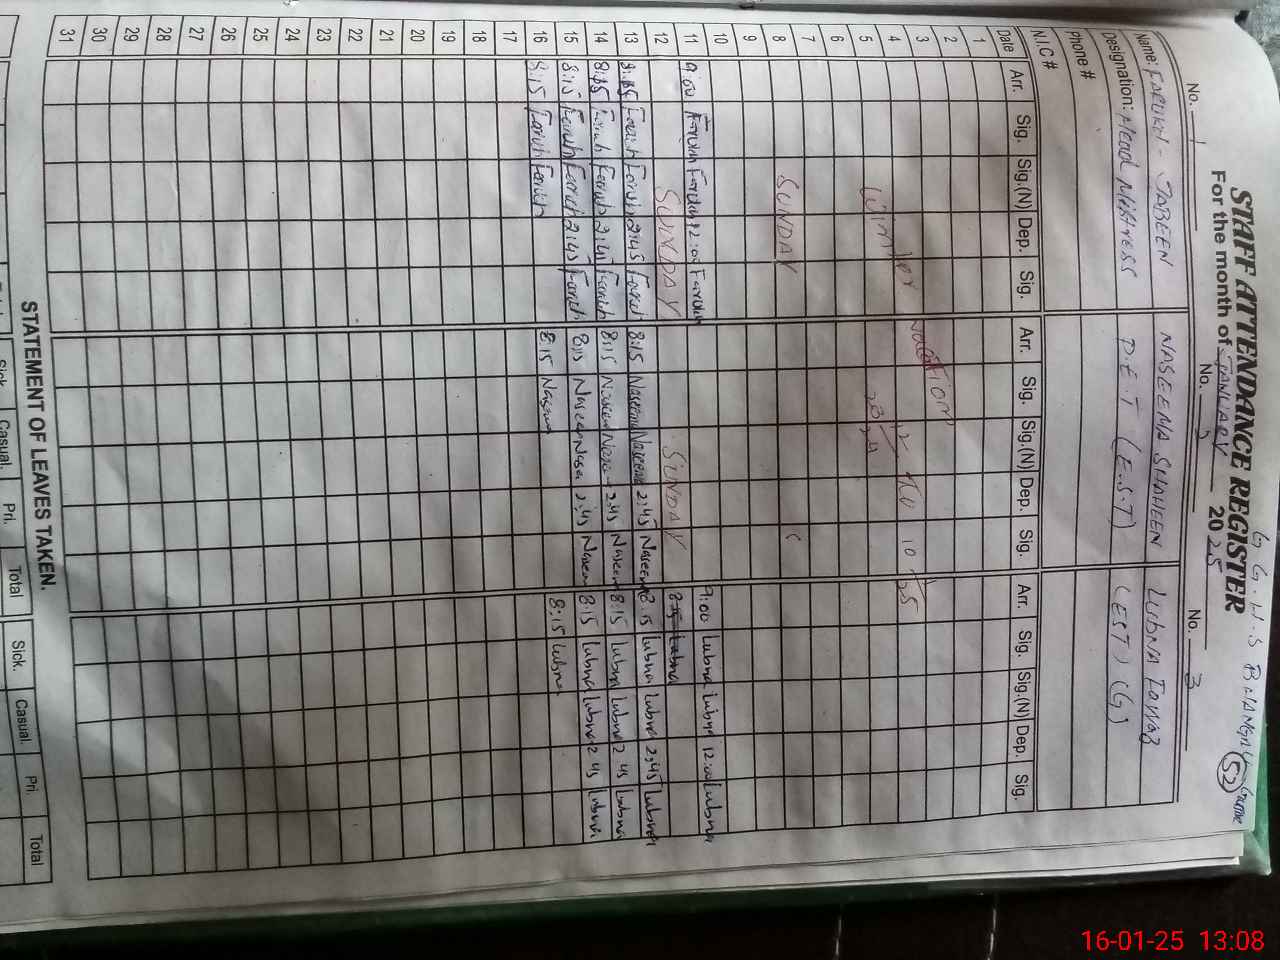 G.G.H.S
STAFF ATTENDANCE REGISTER
52
For the month of JANUARY 2025
No. 1 No. 2 No. 3
Name: FARUKH - JABEEN NASEEMA SHAHEEN LUBNA
Designation: Head Mistress P.E.T (E.S.T) (EST) (G)
Phone #
N.I.C #
Date Arr. Sig. Sig.(N) Dep. Sig. Arr. Sig. Sig.(N) Dep. Sig. Arr. Sig. Sig.(N) Dep. Sig.
1
2
3
4
5
6
7
8 SUNDAY
9
10
11 9:00 Farukh Farukh 12:00 Farukh 9:00 Lubna Lubna 12:00 Lubna
12 SUNDAY SUNDAY Lubna
13 8:15 Farukh Farukh 2:45 Farukh 8:15 Naseema Naseema 2:45 Naseema 8:15 Lubna Lubna 2:45 Lubna
14 8:15 Farukh Farukh 2:45 Farukh 8:15 Naseem Nasee 2:45 Naseem 8:15 Lubna Lubna 2 45 Lubna
15 8:15 Farukh Farukh 2:45 Farukh 8:15 Naseem Naseem 2:45 Naseem 8:15 Lubna Lubna 2 45 Lubna
16 8:15 Farukh Farukh 8:15 Naseem 8:15 Lubna
17
18
19
20
21
22
23
24
25
26
27
28
29
30
31
Winter vacation
STATEMENT OF LEAVES TAKEN.
Sick. Casual. Pri. Total Sick. Casual. Pri. Total
16-01-25 13:08